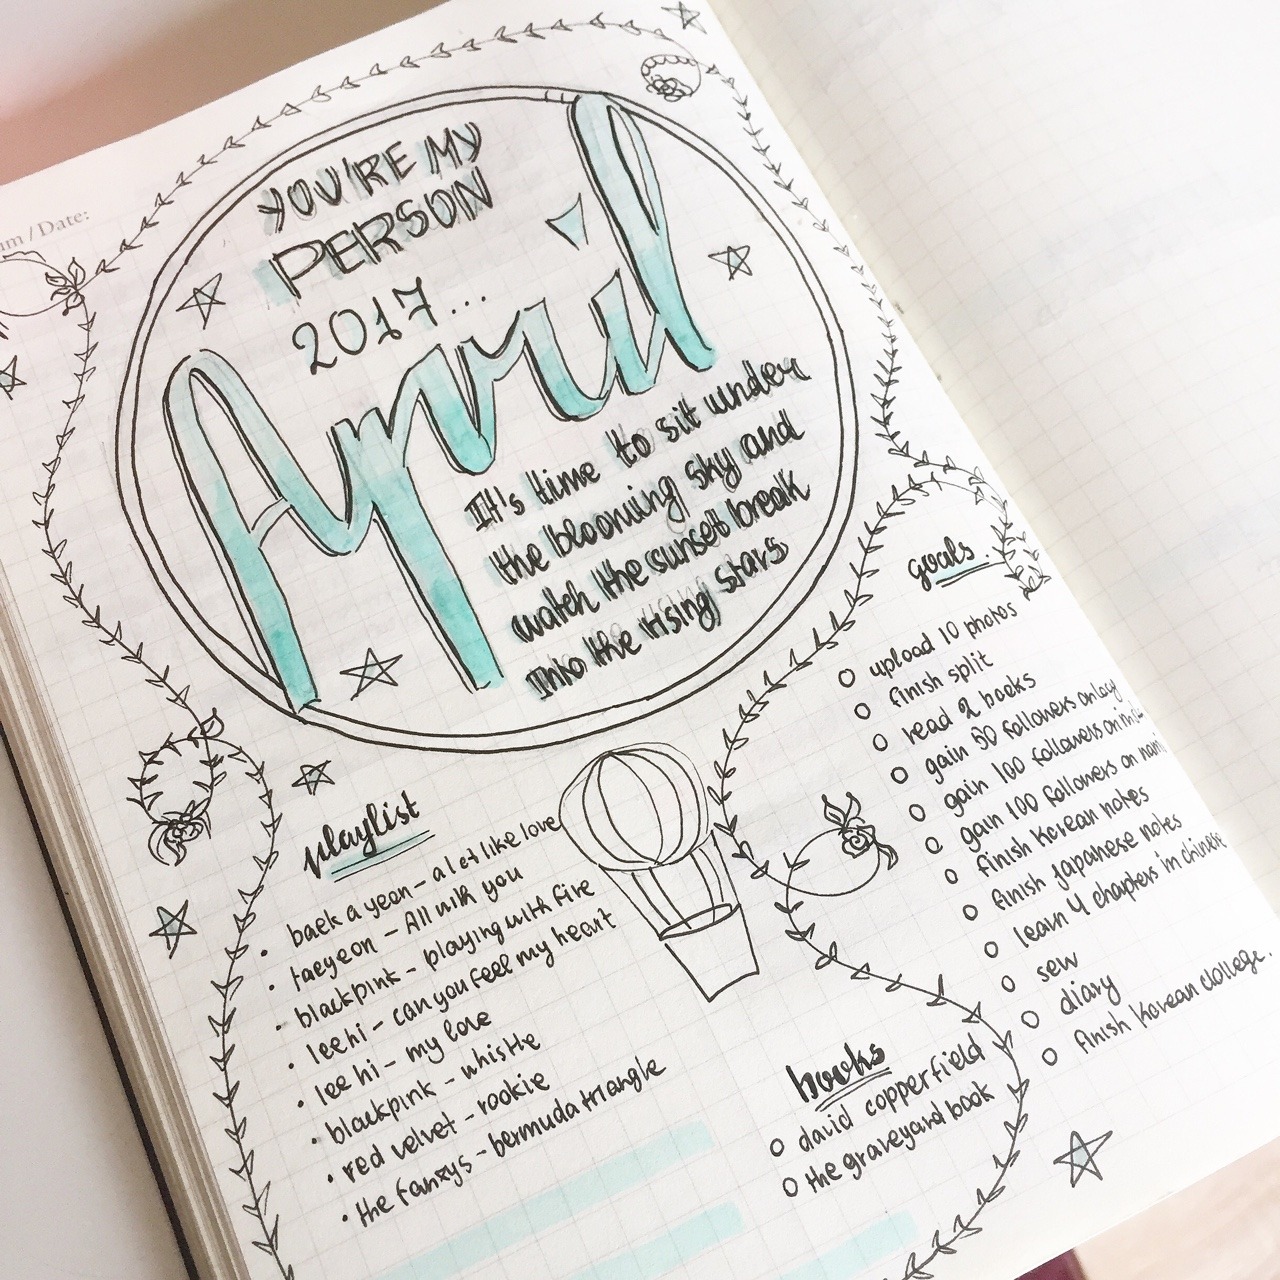 um / Date:
YOU'RE MY
PERSON
2017...
April
It's time to sit under
the blooming sky and
watch the sunset break
into the rising stars
playlist
baek a yeon - a lot like love
taeyeon - All with you
blackpink - playing with fire
lee hi - can you feel my heart
lee hi - my love
blackpink - whistle
red velvet - rookie
the fanxys - bermuda triangle
goals
upload 10 photos
finish split
read 2 books
gain 50 followers on
gain 100 followers on
gain 100 followers on
finish korean notes
finish japanese notes
learn 4 chapters in chinese
sew
diary
finish korean college.
books
david copperfield
the graveyard book